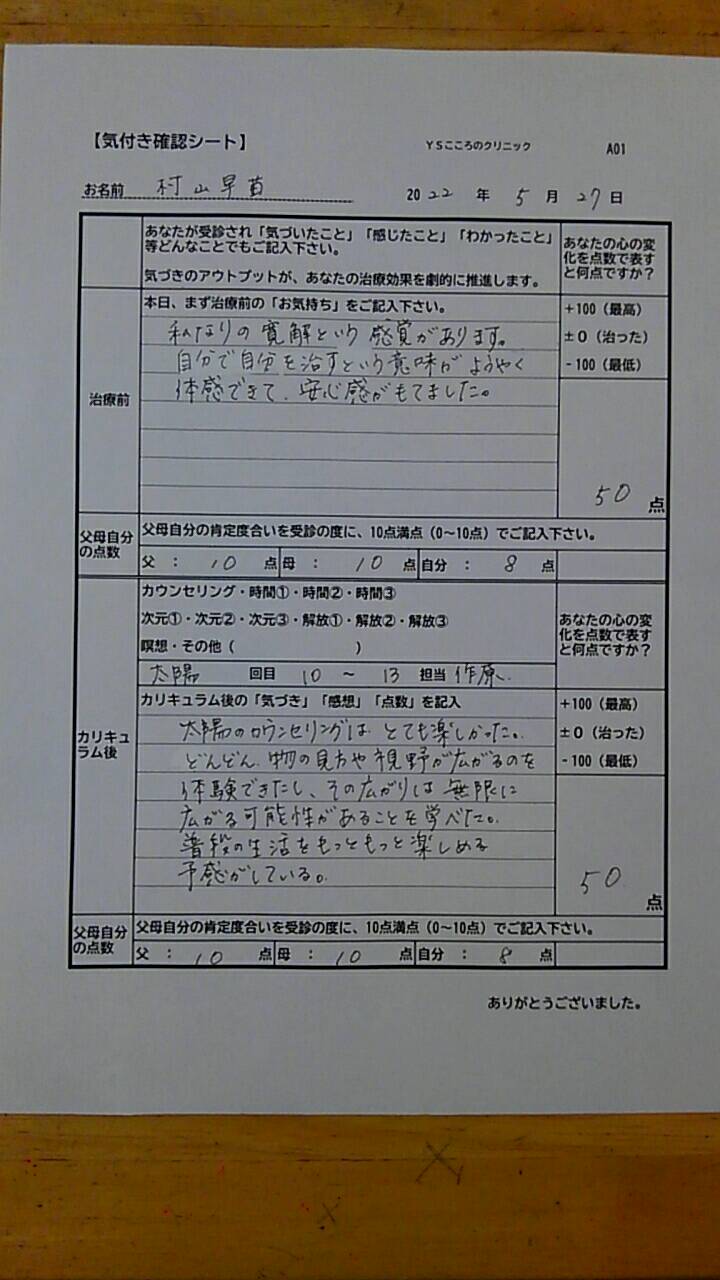 【気付き確認シート】 YSこころのクリニック A01
お名前 村山早苗 2022年 5月 27日
あなたが受診され「気づいたこと」「感じたこと」「わかったこと」
等どんなことでもご記入下さい。
気づきのアウトプットが、あなたの治療効果を劇的に推進します。
あなたの心の変
化を点数で表す
と何点ですか？
治療前
本日、まず治療前の「お気持ち」をご記入下さい。
私なりの寛解という感覚があります。
自分で自分を治すという意味がようやく
体感できて、安心感がもてました。
+100（最高）
±0（治った）
-100（最低）
50 点
父母自分
の点数
父母自分の肯定度合いを受診の度に、10点満点（0～10点）でご記入下さい。
父 ： 10 点 母 ： 10 点 自分 ： 8 点
カリキュ
ラム後
カウンセリング・時間①・時間②・時間③
次元①・次元②・次元③・解放①・解放②・解放③
瞑想・その他（ ）
太陽 回目 10 ～ 13 担当 作原
あなたの心の変
化を点数で表す
と何点ですか？
カリキュラム後の「気づき」「感想」「点数」を記入
太陽のカウンセリングは とても楽しかった。
どんどん、物の見方や視野が広がるのを
体験できたし、その広がりは無限に
広がる可能性があることを学べた。
普段の生活をもっともっと楽しめる
予感がしている。
+100（最高）
±0（治った）
-100（最低）
50 点
父母自分
の点数
父母自分の肯定度合いを受診の度に、10点満点（0～10点）でご記入下さい。
父 ： 10 点 母 ： 10 点 自分 ： 8 点
ありがとうございました。